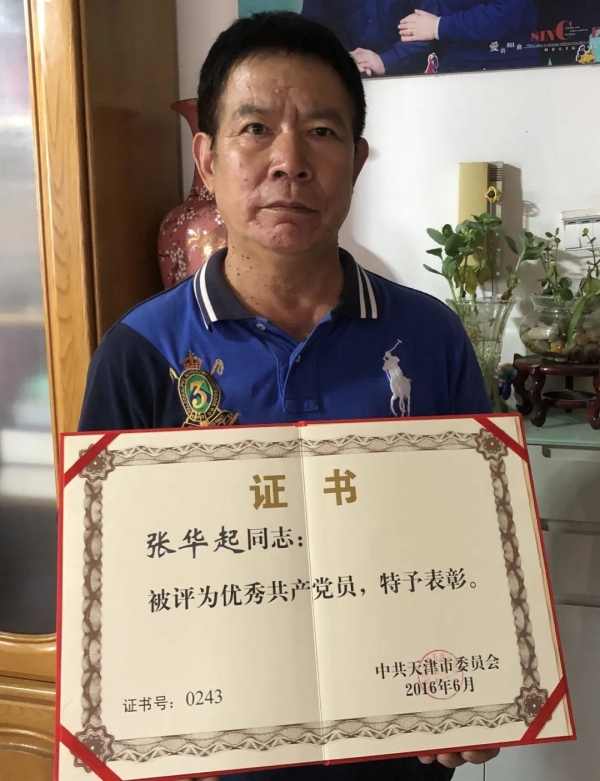 SINCE
愛
3
证书
张华起同志：
被评为优秀共产党员，特予表彰。
中共天津市委员会
2016年6月
证书号：0243